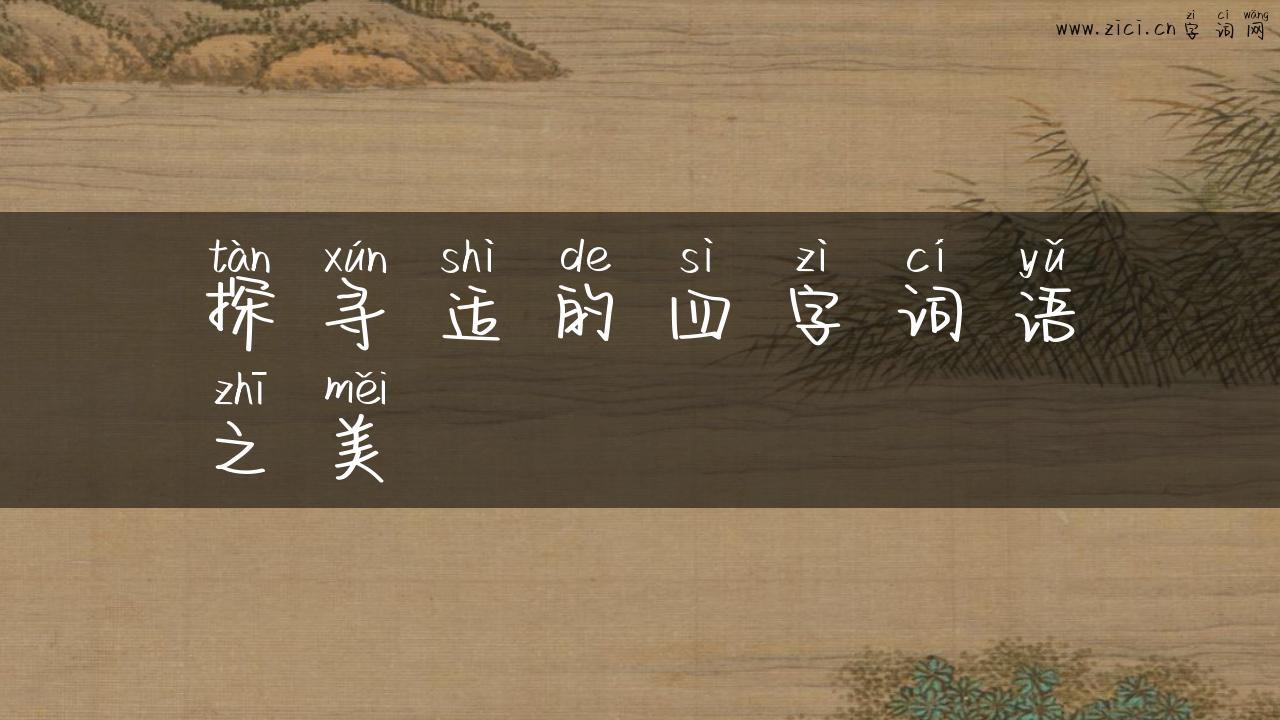 www.zici.cn
zì cí wǎng
字词网
tàn xún shì de sì zì cí yǔ
探寻适的四字词语
zhī měi
之美